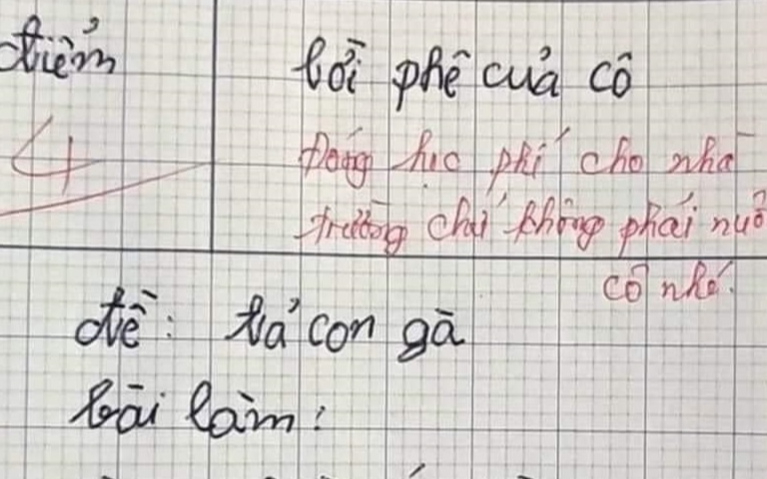 điểm
lời phê của cô
4
Đóng học phí cho nhà
trường chứ không phải nuô
cô nhé.
đề: tả con gà
bài làm: